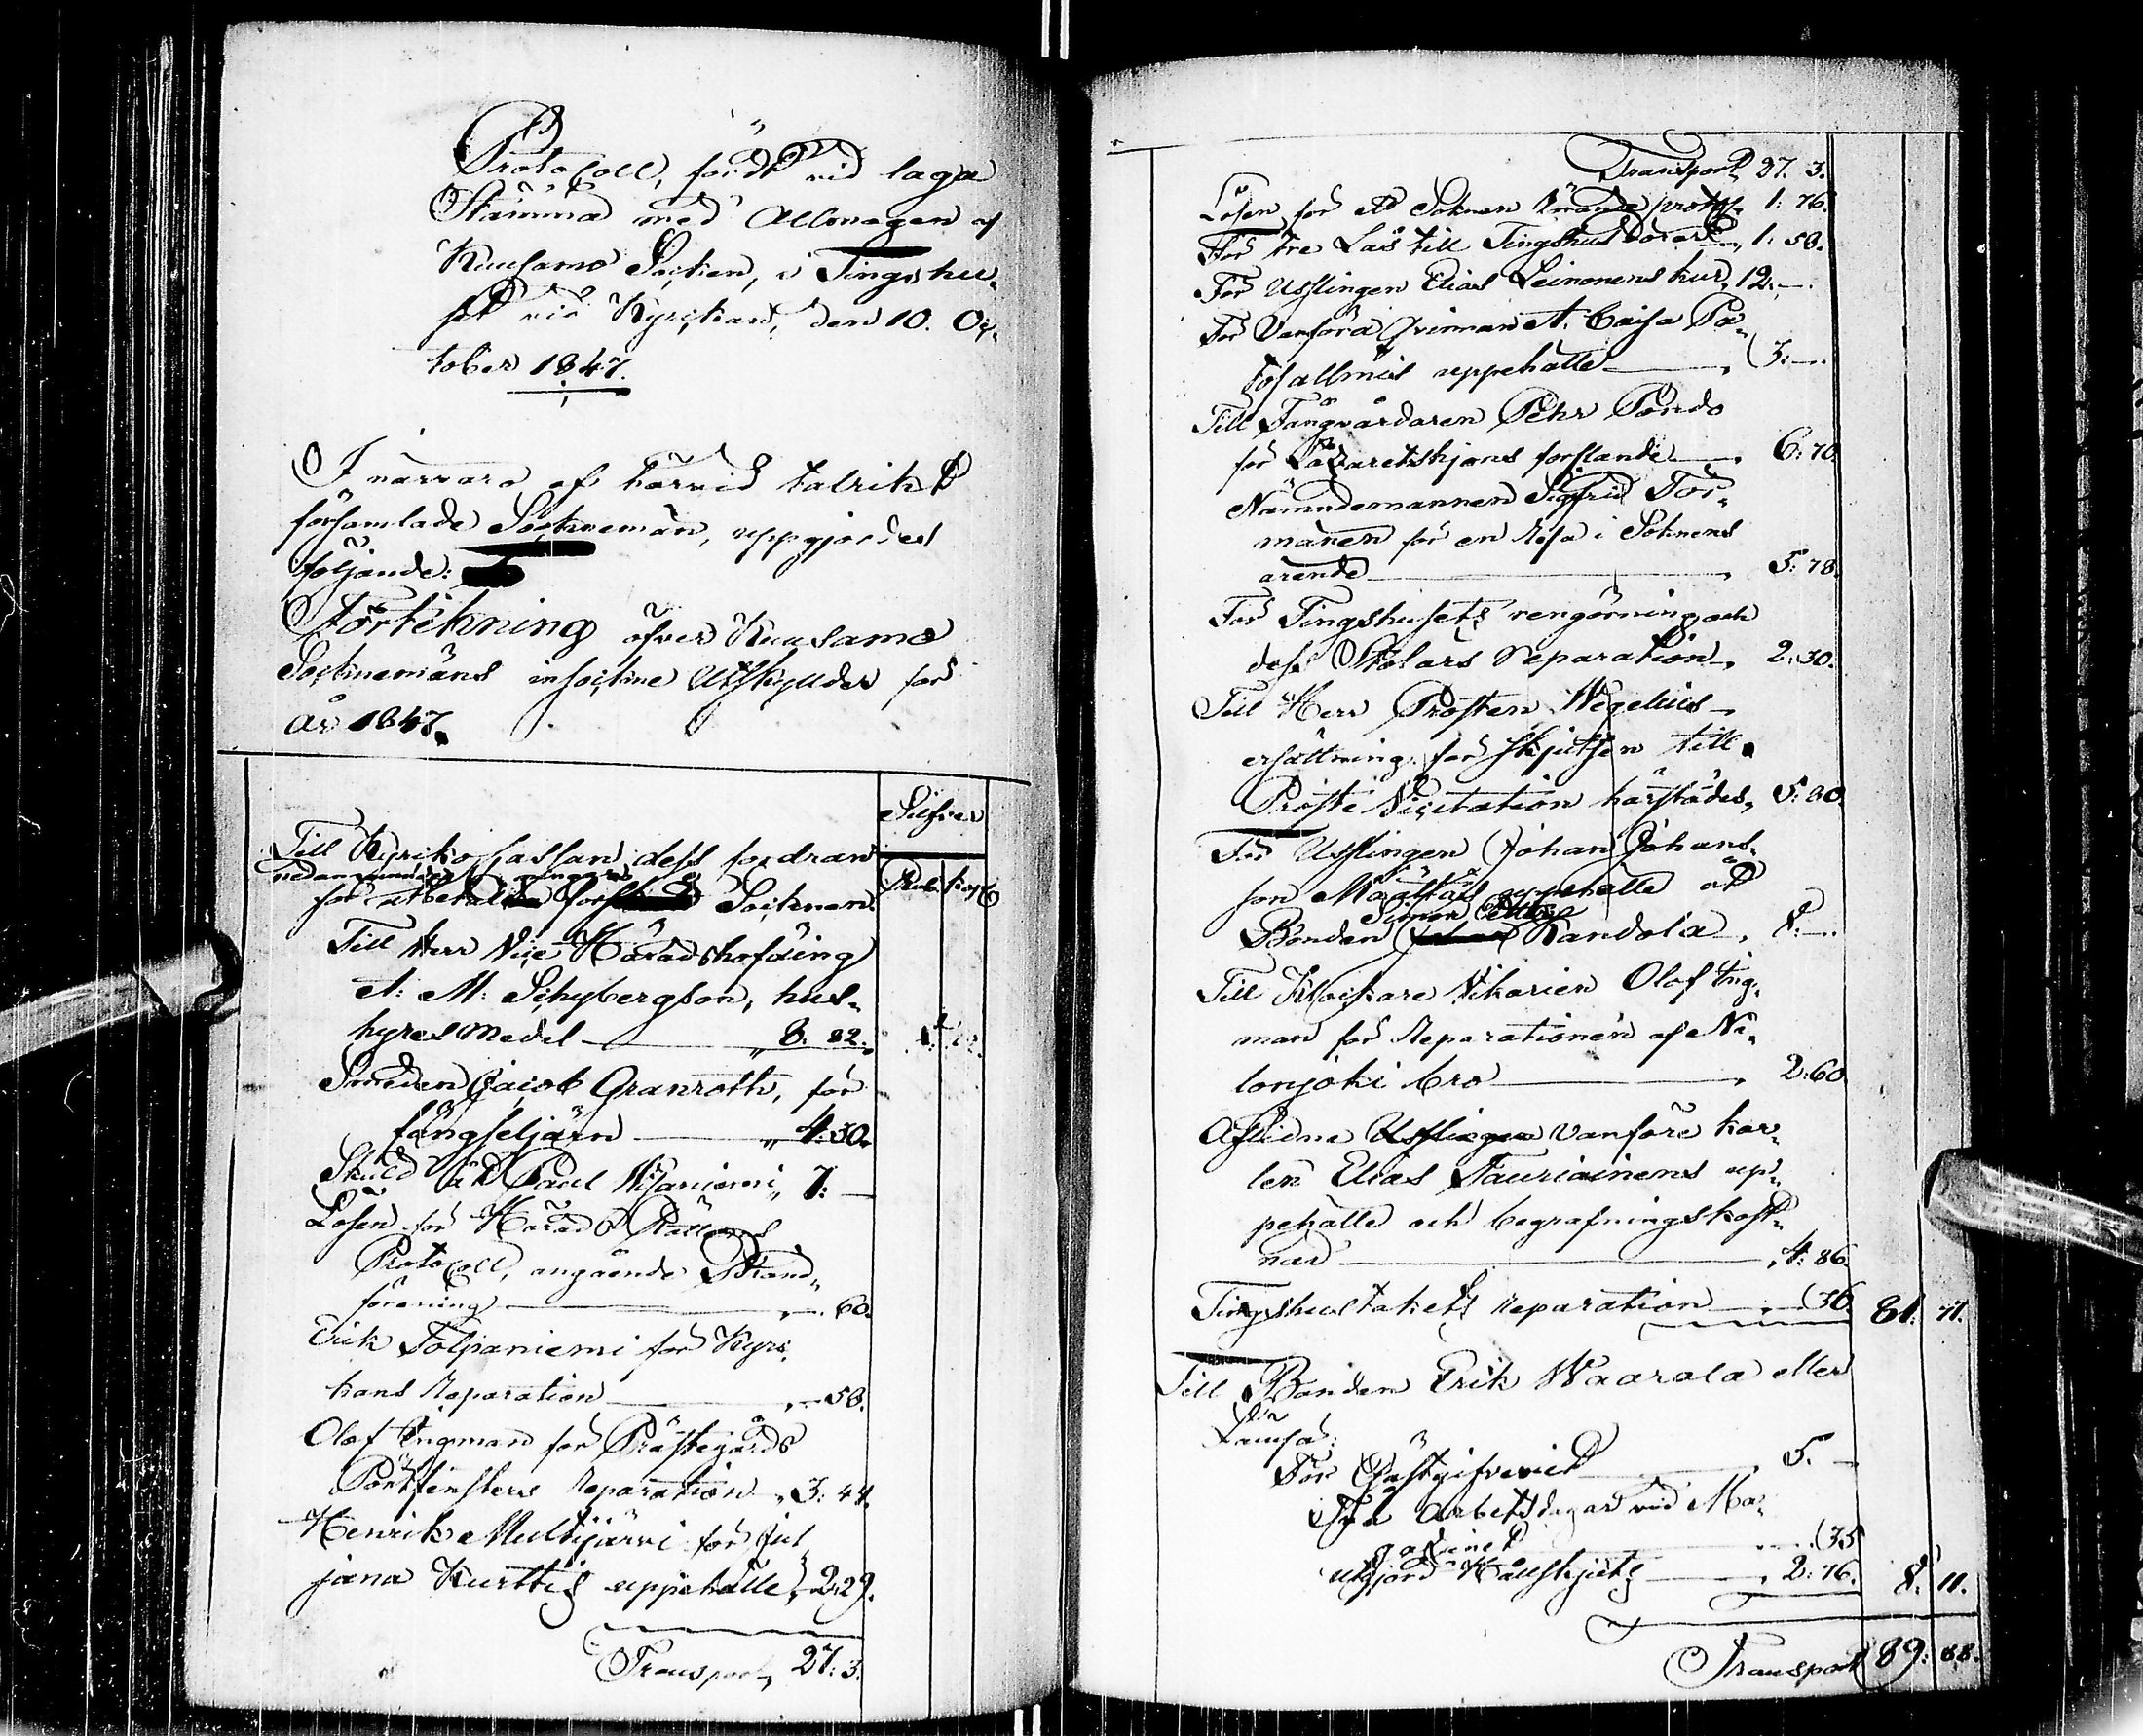 Protocoll, fördt vid laga
Stämma med Allmogen af
Kuusamo Socken, i Tingshu„
set vid Kyrckan, den 10. Oc„
tober 1847.
I närvaro af härvid talrikt
församlade Socknemän, uppgjordes
följande:
Förtekning öfver Kuusamo
Socknemäns insockne Utskylder för
år 1847.
Silfver
Rub. Kop.
Till Kyrcko Cassan dess fordran
för Socknen.
Till Herr Vice Häradshöfding
A: M: Schybergson, hus„
hyres Medel „ 8. 82.
Smeden Jacob Granroth, för
fängseljärn „ 4:30.
Skuld åt Paul Wisaniemi „ 7: —
Lösen för Härads Rättens
Protocoll, angående Brand„
förening „ —. 60.
Erik Tolpaniemi för Kyrc„
kans Reparation „ — 58.
Olof Engman för Prästegårds
Pörtfensters Reparation „ 3: 44.
Henrik Multijärvi för Jul„
jana Kurttis uppehälle „ 2:29.
Transport „ 27: 3.
Transport 27. 3.
Lösen för ett Soknen rörande protok. 1: 76.
För tre Lås till Tingshus dörar „ 1: 58.
För Usslingen Elias Leinonens kur „ 12. —.
För Vanföra Qvinnan A. Caisa Pa„
tosallmis uppehälle „ 3: —.
Till Fångvårdaren Pehr Pondo
för Lazaretskjons forslande „ 6: 70
Nämndemannen Sigfrid Tor„
mänen för en Resa i Soknens
ärende „ 5: 78.
För Tingshusets rengörning och
dess Stolars Reparation „ 2: 30.
Till Herr Prosten Wegelius
ersättning för skjutsen till
Proste Visitation härstädes „ 5: 80.
För Usslingen Johan Johans„
son Määttäs uppehälle åt
Simon
Bonden Kandola „ 8. —.
Till Klockare Vikarien Olof Eng„
man för Reparationen af Ni„
lonjoki bro „ 2:60
Aflidne Usslingen vanföre kar„
len Elias Tauriainens up„
pehälle och begrafningskost„
nad „ 4: 86.
Tingshustakets Reparation „ —. 36. 81. 77.
Till Bonden Erik Waarala eller
Lämsä:
För Gästgifveriet „ 5. —
Två Arbetsdagar vid Ma„
gasinet „ —. 35
Utgjord Hållskjuts „ 2: 76. 8. 11.
Transport 89: 88.